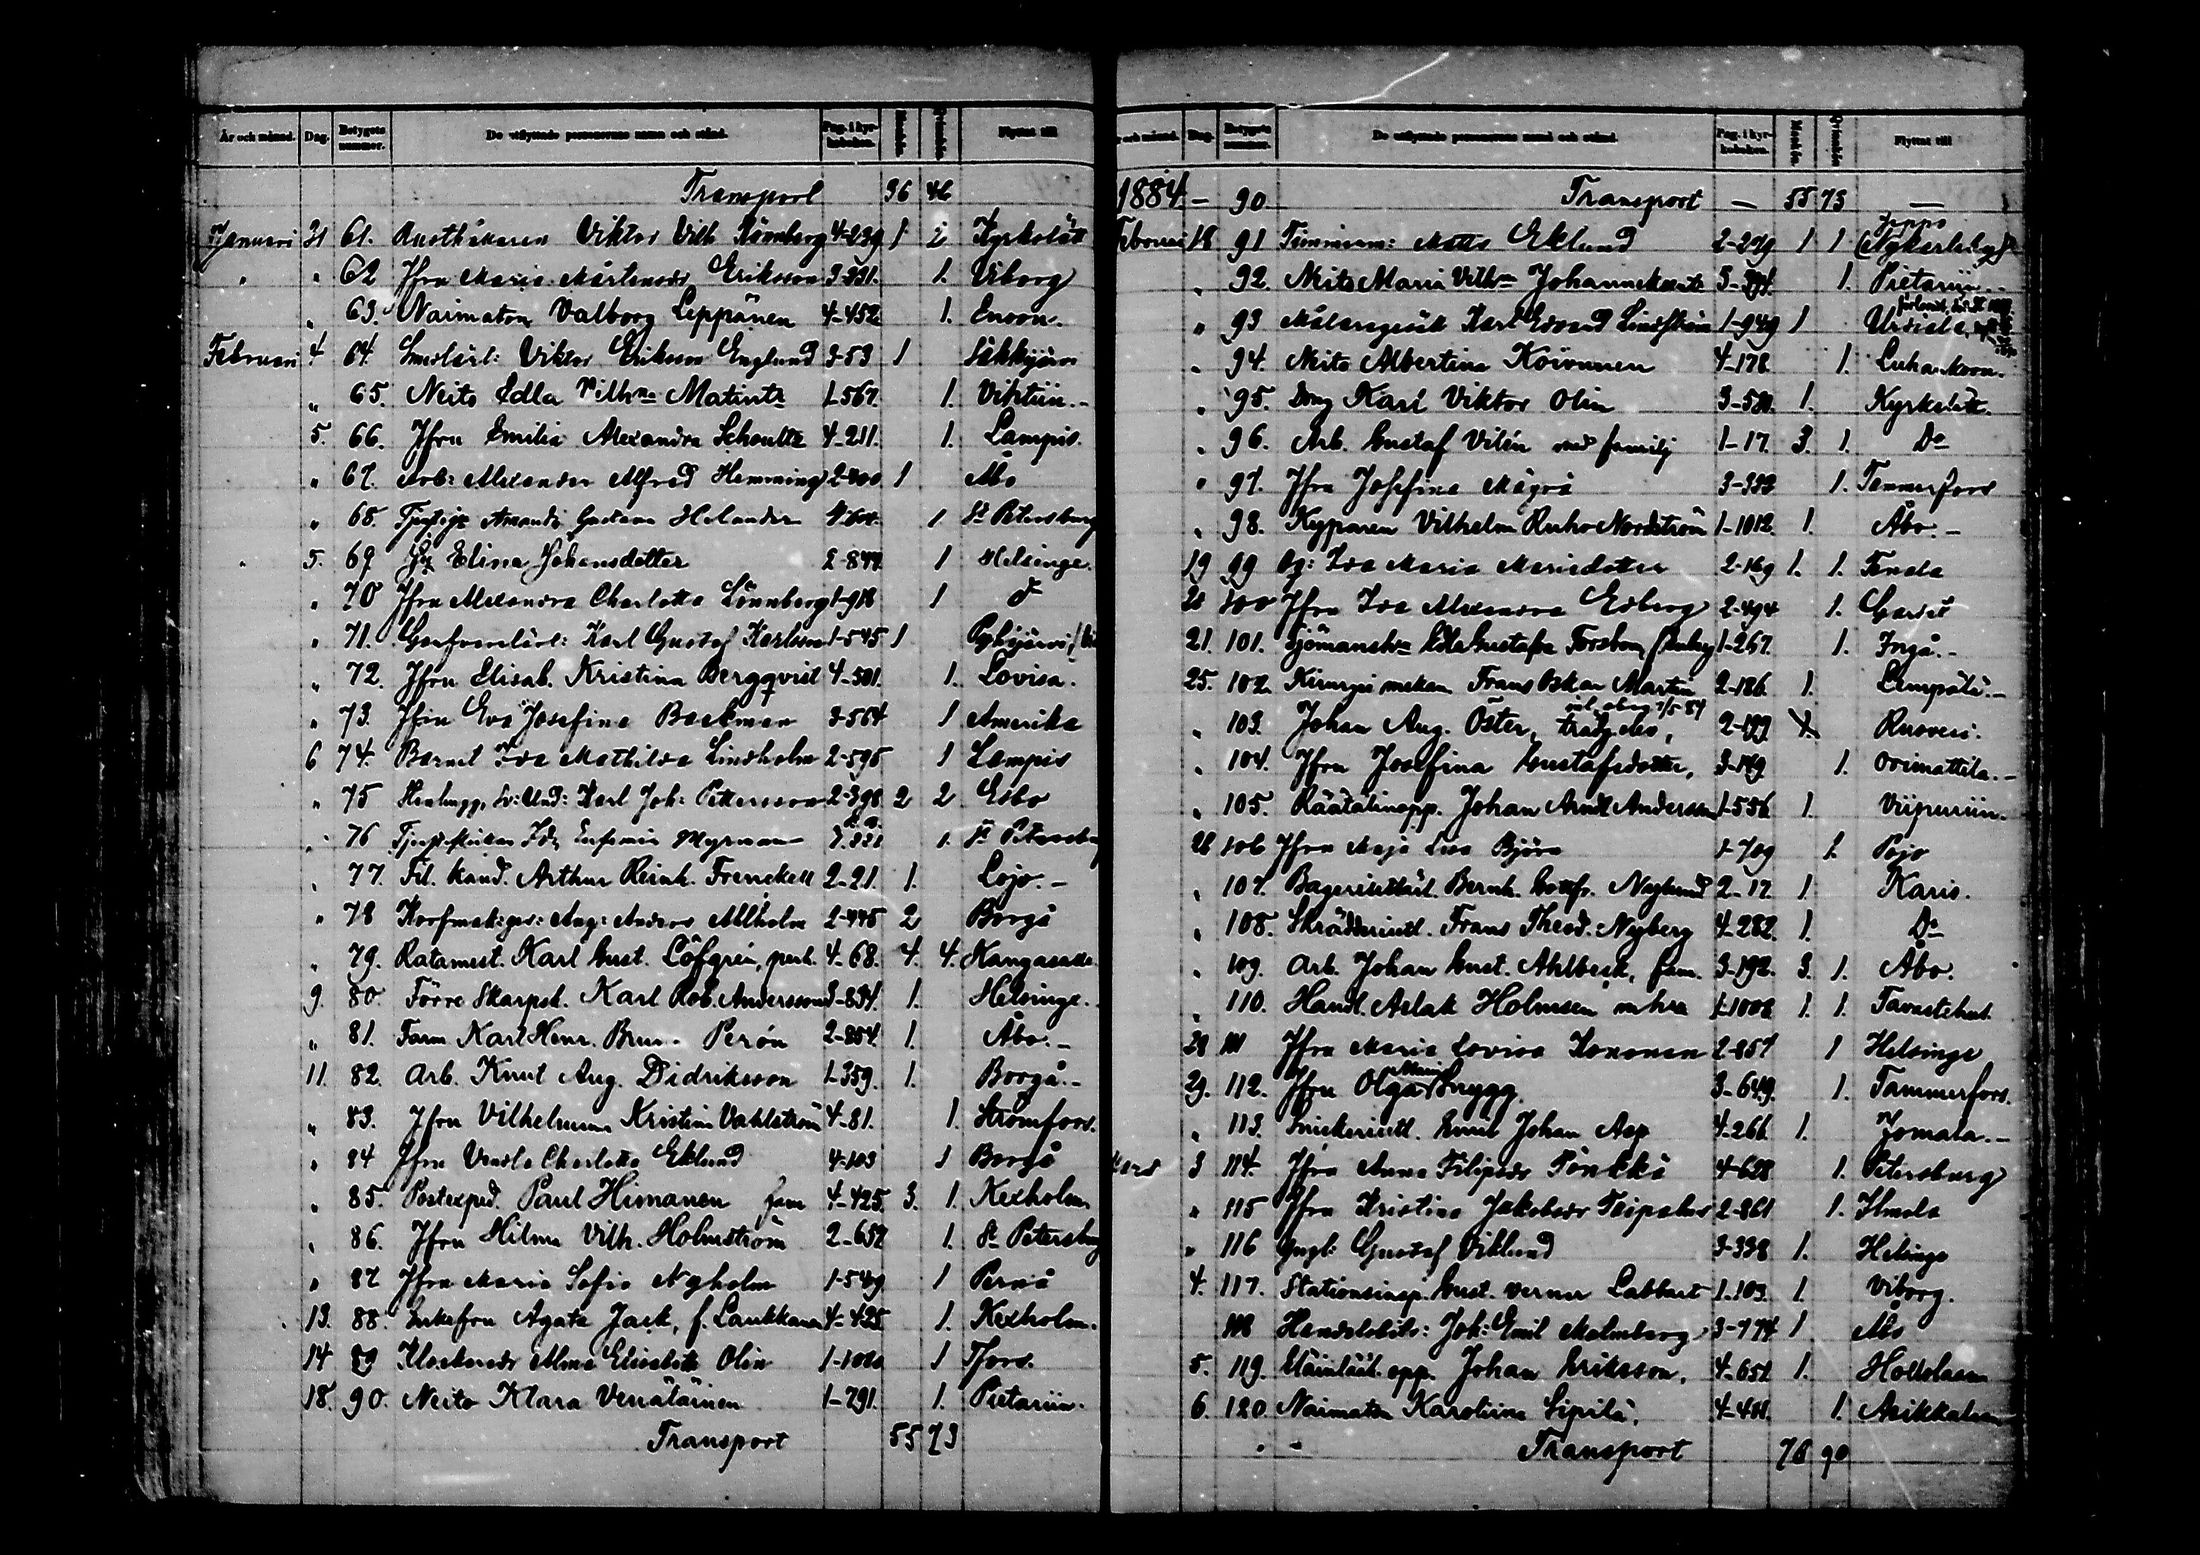 År och månad. Dag. Betygets nummer. De utflyttade personernas namn och stånd. Pag. i kyrkoboken. Mankön. Qvinnkön. Flyttat till
Transport 36 46
Januari 31 61. Viktor Vilh. Lönnberg 4-239 1 2 Kyrkslätt
" " 62 Jfru Maria Mårtensdr Eriksson 3-331. 1. Viborg
" 63. Naimaton Valborg Leppänen 4-452 1. Enoon.
Februari 4 64. Smedlärl: Viktor Eriksson Englund 3-53 1 Säkkijärvi
" 65. Neito Edla Vilhna Matintr 1-567. 1. Vihtiin.-
5. 66. Jfru Emilia Alexandra Schoultz 4-211. 1. Lampis.
" 67. Arb: Alexander Alfred Hemming 2-400 1 Åbo
" 68. Amanda Gustava Helander 1 St Petersburg
" 5. 69 Elina Johansdotter 2-844 1 Helsinge.
" 70 Jfru Alexandra Charlotta Lönnberg 1-918 1 do
" 71. Karl Gustaf Karlsson 1-545 1
" 72. Jfru Elisab. Kristina Bergqvist 4-301. 1. Lovisa.
" 73. Jfru Eva Josefina Backman 3-564 1 Amerika
6 74. Barnet Ida Mathilda Lindholm 2-595 1 Lampis
" 75 Karl Joh: Pettersson 2-398 2 2 Esbo
" 76 Ida Eufemia Myrman 1. St Petersburg
" 77. Fil. kand. Arthur Reinh. Frenckell 2-21. 1. Lojo.-
" 78 Korfmak: ges: Aug: Anders Ahlholm 2-445 2 Borgå
" 79. Ratamest. Karl Gust. Löfgren, perh. 4-68. 4. 4. Kangasalle
9. 80. Förre Skarpsk. Karl Rob. Andersson 3-834. 1. Helsinge.
" 81. Farm Karl Henr. Perón 2-854. 1. Åbo.-
11. 82. Arb. Knut Aug. Didriksson 1-359. 1. Borgå.-
" 83. Jfru Vilhelmina Kristina Vahlström 4-81. 1. Strömfors.
" 84 Jfru Vendla Charlotta Eklund 4-103 1 Borgå
" 85. Postexped. Paul Himanen fam 4-425. 3. 1. Kexholm
" 86. Jfru Hilma Vilh. Holmström 2-652 1. St Petersburg
" 87 Jfru Maria Sofia Nyholm 1-549 1 Pernå
13. 88. Enkefru Agata Jack, f. Laukkanen 4-425 1. Kexholm.
14 89 Alma Elisabeth Olin 1 Tfors.
18. 90. Neito Klara Venäläinen 1-291. 1. Pietariin.
Transport 55 73
och månad. Dag. Betygets nummer. De utflyttade personernas namn och stånd. Pag. i kyrkoboken. Mankön. Qvinnkön. Flyttat till
1884. - 90 Transport — 55 73 —
Jeppo
Februari 18 91 Timmerm: Matts Eklund 2-279 1 1 (Nykarleby)
" 92. Neito Maria Vilhna Johanneksentr 1. Pietariin.-
" 93 Målaregesäll Karl Edvard Lindström 1-949 1 Urdiala,
" 94. Neito Albertina Koivunen 4-178 1. Luhankoon.
" 95. Dräng Karl Viktor Olin 1. Kyrkslätt.
" 96. Arb. Gustaf Vilén med familj 1-17. 3. 1. Do
" 97. Jfru Josefina Mägrä 3-333 1. Tammerfors
" 98. Kyparen Vilhelm Ruho Nordström 1-1012. 1. Åbo.-
19 99 Ida Maria Mariedotter 2-169 1. 1. Tenala
100 Jfru Ida Alexandra Edberg 2-494 1.
21. 101. Sjömanshu Edla Gustafva Forsbom 1-267. 1. Ingå.-
25. 102. Frans Oskar Martin 2-186 1. Lempälä.-
" 103. Johan Aug. Öster, Rusveri.
" 104. Jfru Josefina Gustafsdotter, 3-149 1. Orimattila.-
" 105. Räätälinopp. Johan Arvid Andersson 1-556 1. Viipuriin.
28 106 Jfru Maja Lisa Björn 1-709 1. Pojo
" 107. Bernh. Gottfr. Naglund 2-17. 1. Karis.
" 108. Skräddarelärl. Frans Theod. Nyberg 4-282. 1. Do
" 109. Arb. Johan Gust. Ahlbeck, fam. 3-192. 3. 1. Åbo.
" 110. Handl. Aslak Holmsen m. hu 1-1008 1. 1. Tavastehus
28 111 Jfru Maria Lovisa Kononen 2-857 1 Helsinge
29. 112. Jfru Olga Maria Snygg 3-649. 1. Tammerfors.
" 113. Snickerilärl. Emil Johan Asp 4-266 1. Jomala.-
Mars 3 114. Jfru Anna Filipsdr Pönkkä 4-628 1. Petersburg
" 115 Jfru Kristina Jakobsdr Taipalus 2-861 1. Ilmola
" 116 Gustaf Viklund 3-338 1. Helsinge
4. 117. Stationsinsp. Gust. Verner Labbart 1-103. 1. Viborg.
118 Joh: Emil Malmberg 3-774 1 Åbo
5. 119. opp. Johan Eriksson, 4-652 1. Hollolaan
6. 120. Naimaton Karoliina Sipilä, 1. Asikkalaan
Transport 76 90